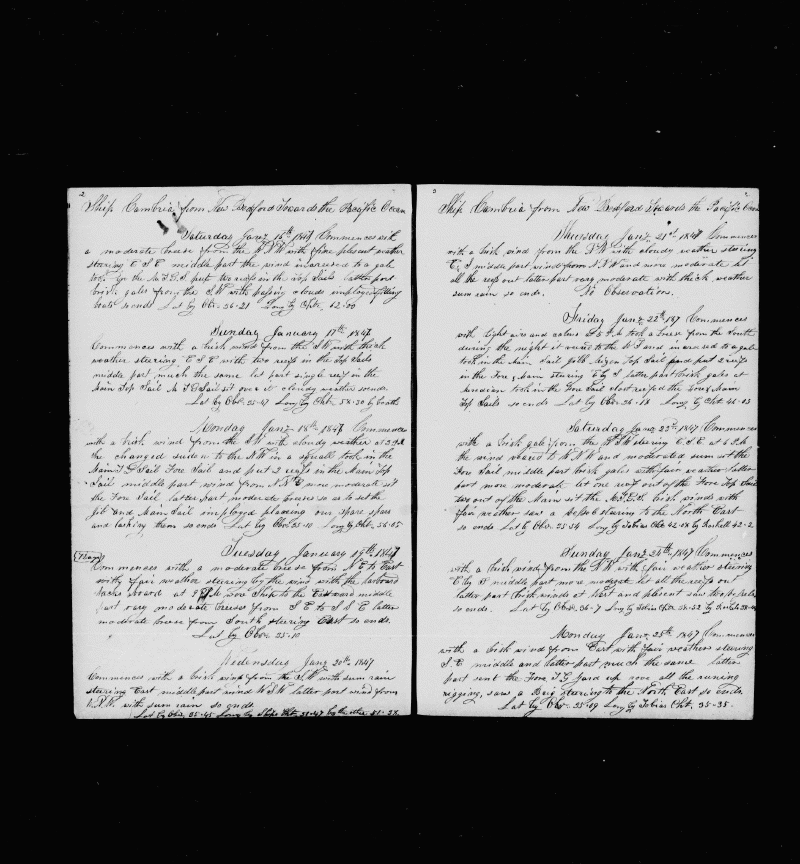 2
Ship Cambria from New Bedford Towards the Pacific Ocean
Saturday Jany 16th 1847 Commences with
a moderate breese from the W N W with fine plesent weather
stearing E S E middle part the wind increesed to a gale
took in the M T G S put two reefs in the Top Sails latter part
brisk gales from the S W with passing clouds imployed fitting
boats so ends Lat by Obr 36-21 Long by Chtr 62-00
Sunday January 17th 1847
Commences with a brisk wind from the S W with thick
weather stearing E S E with two reefs in the Top Sails
middle part much the same lat part single reef in the
Main Top Sail M T G Sail sit over it cloudy weather so ends
Lat by Obr 35-47 Long by Chtr 58-50 by both
Monday Jany 18th 1847 Commences
with a brisk wind from the S W with cloudy weather at 3 P M
the changed suden to the N W in a squall took in the
Main T G Sail Fore Sail and put 2 reefs in the Main Top
Sail middle part wind from N N E more moderate sit
the Fore Sail latter part moderate breeses so as to set the
jib and Main Sail imployed plaining our spare spars
and lashing them so ends Lat by Obr 35-10 Long by Chtr 56-05
Tuesday January 19th 1847
Commences with a moderate breese from N E to East
with fair weather stearing by the wind with the larbord
tacks board at 9 P M wore Ship to the Eastward middle
part very moderate breeses from S E to S S E latter
moderate breese from South stearing East so ends
Lat by Obr 35-10
Wedensday Jany 20th 1847
Commences with a brisk wind from the S W with sum rain
stearing East middle part wind W S W latter part wind from
with sum rain so ends
Lat by Obr 35-45 Long by Ships Chtr by the other
3
Ship Cambria from New Bedford Towards the Pacific Ocean
Thursday Jany 21st 1847 Commences
with a brisk wind from the S W with cloudy weather stearing
E by S middle part wind from N N W and more moderate let
all the reefs out latter part vary moderate with thick weather
sum rain so ends. No Observation.
Friday Jany 22th 187 Commences
with light airs and calms 5 P M took a breese from the South
during the night it veered to the W S and increased to a gale
took in the Main Sail jibb Mizen Top Sail and put 2 reefs
in the Fore & Main stearing E by S latter part brisk gales at
meridian took in the Fore Sail clost reefed the Fore & Main
Top Sails so ends Lat by Obr 36-18 Long by Chtr
Saturday Jany 23rd 1847 Commences
with a brisk gale from the stearing E S E at 6 P M
the wind veared to W N W and moderated sum sit the
Fore Sail middle part brisk gales with fair weather latter
part more moderate let one reef out of the Fore Top Sail
two out of the Main sit the M T G S brisk winds with
fair weather saw a stearing to the North East
so ends Lat by Obr 35-54 Long by Tobias Chtr 42-08 by Kimball 42-2
Sunday Jany 24th 1847 Commences
with a brisk wind from the N W with fair weather stearing
E by S middle part more moderate let all the reefs out
latter part brisk winds at West and plesent saw
so ends. Lat by Obr 36-7 Long by Tobias Chtr 38-52 by Kimbals
Monday Jany 25th 1847 Commences
with a brisk wind from East with fair weathers stearing
S E middle and latter part much the same latter
part sent the Fore T G yard up rove all the runing
rigging, saw a Brig stearing to the North East so ends
Lat by Obr 35-09 Long by Tobias Chtr 35-35.